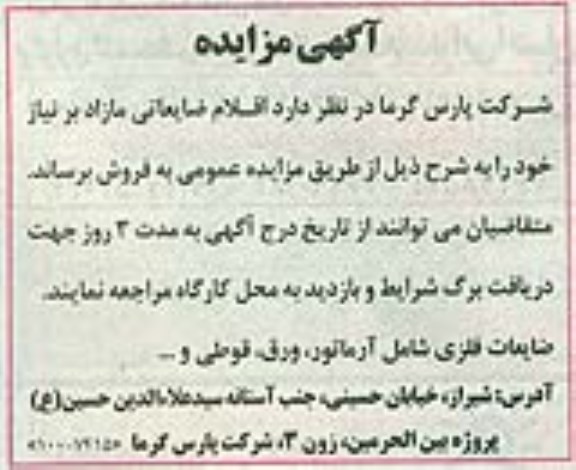 آگهی مزایده
شرکت پارس گرما در نظر دارد اقلام ضایعاتی مازاد بر نیاز
خود را به شرح ذیل از طریق مزایده عمومی به فروش برساند.
متقاضیان می توانند از تاریخ درج آگهی به مدت ۳ روز جهت
دریافت برگ شرایط و بازدید به محل کارگاه مراجعه نمایند.
ضایعات فلزی شامل آرماتور، ورق، قوطی و ...
آدرس: شیراز، خیابان حسینی، جنب آستانه سیدعلاءالدین حسین (ع)
پروژه بین الحرمین، زون ۳، شرکت پارس گرما